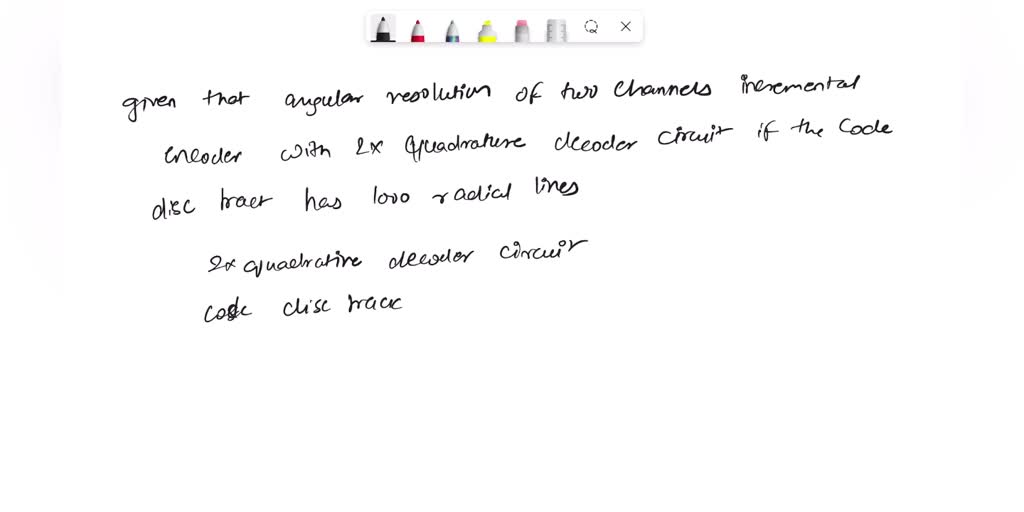 given that angular resolution of two channels incremental
encoder with 2x quadrature decoder circuit if the code
disc tract has 1000 radial lines
2x quadrative decoder circuit
code disc track